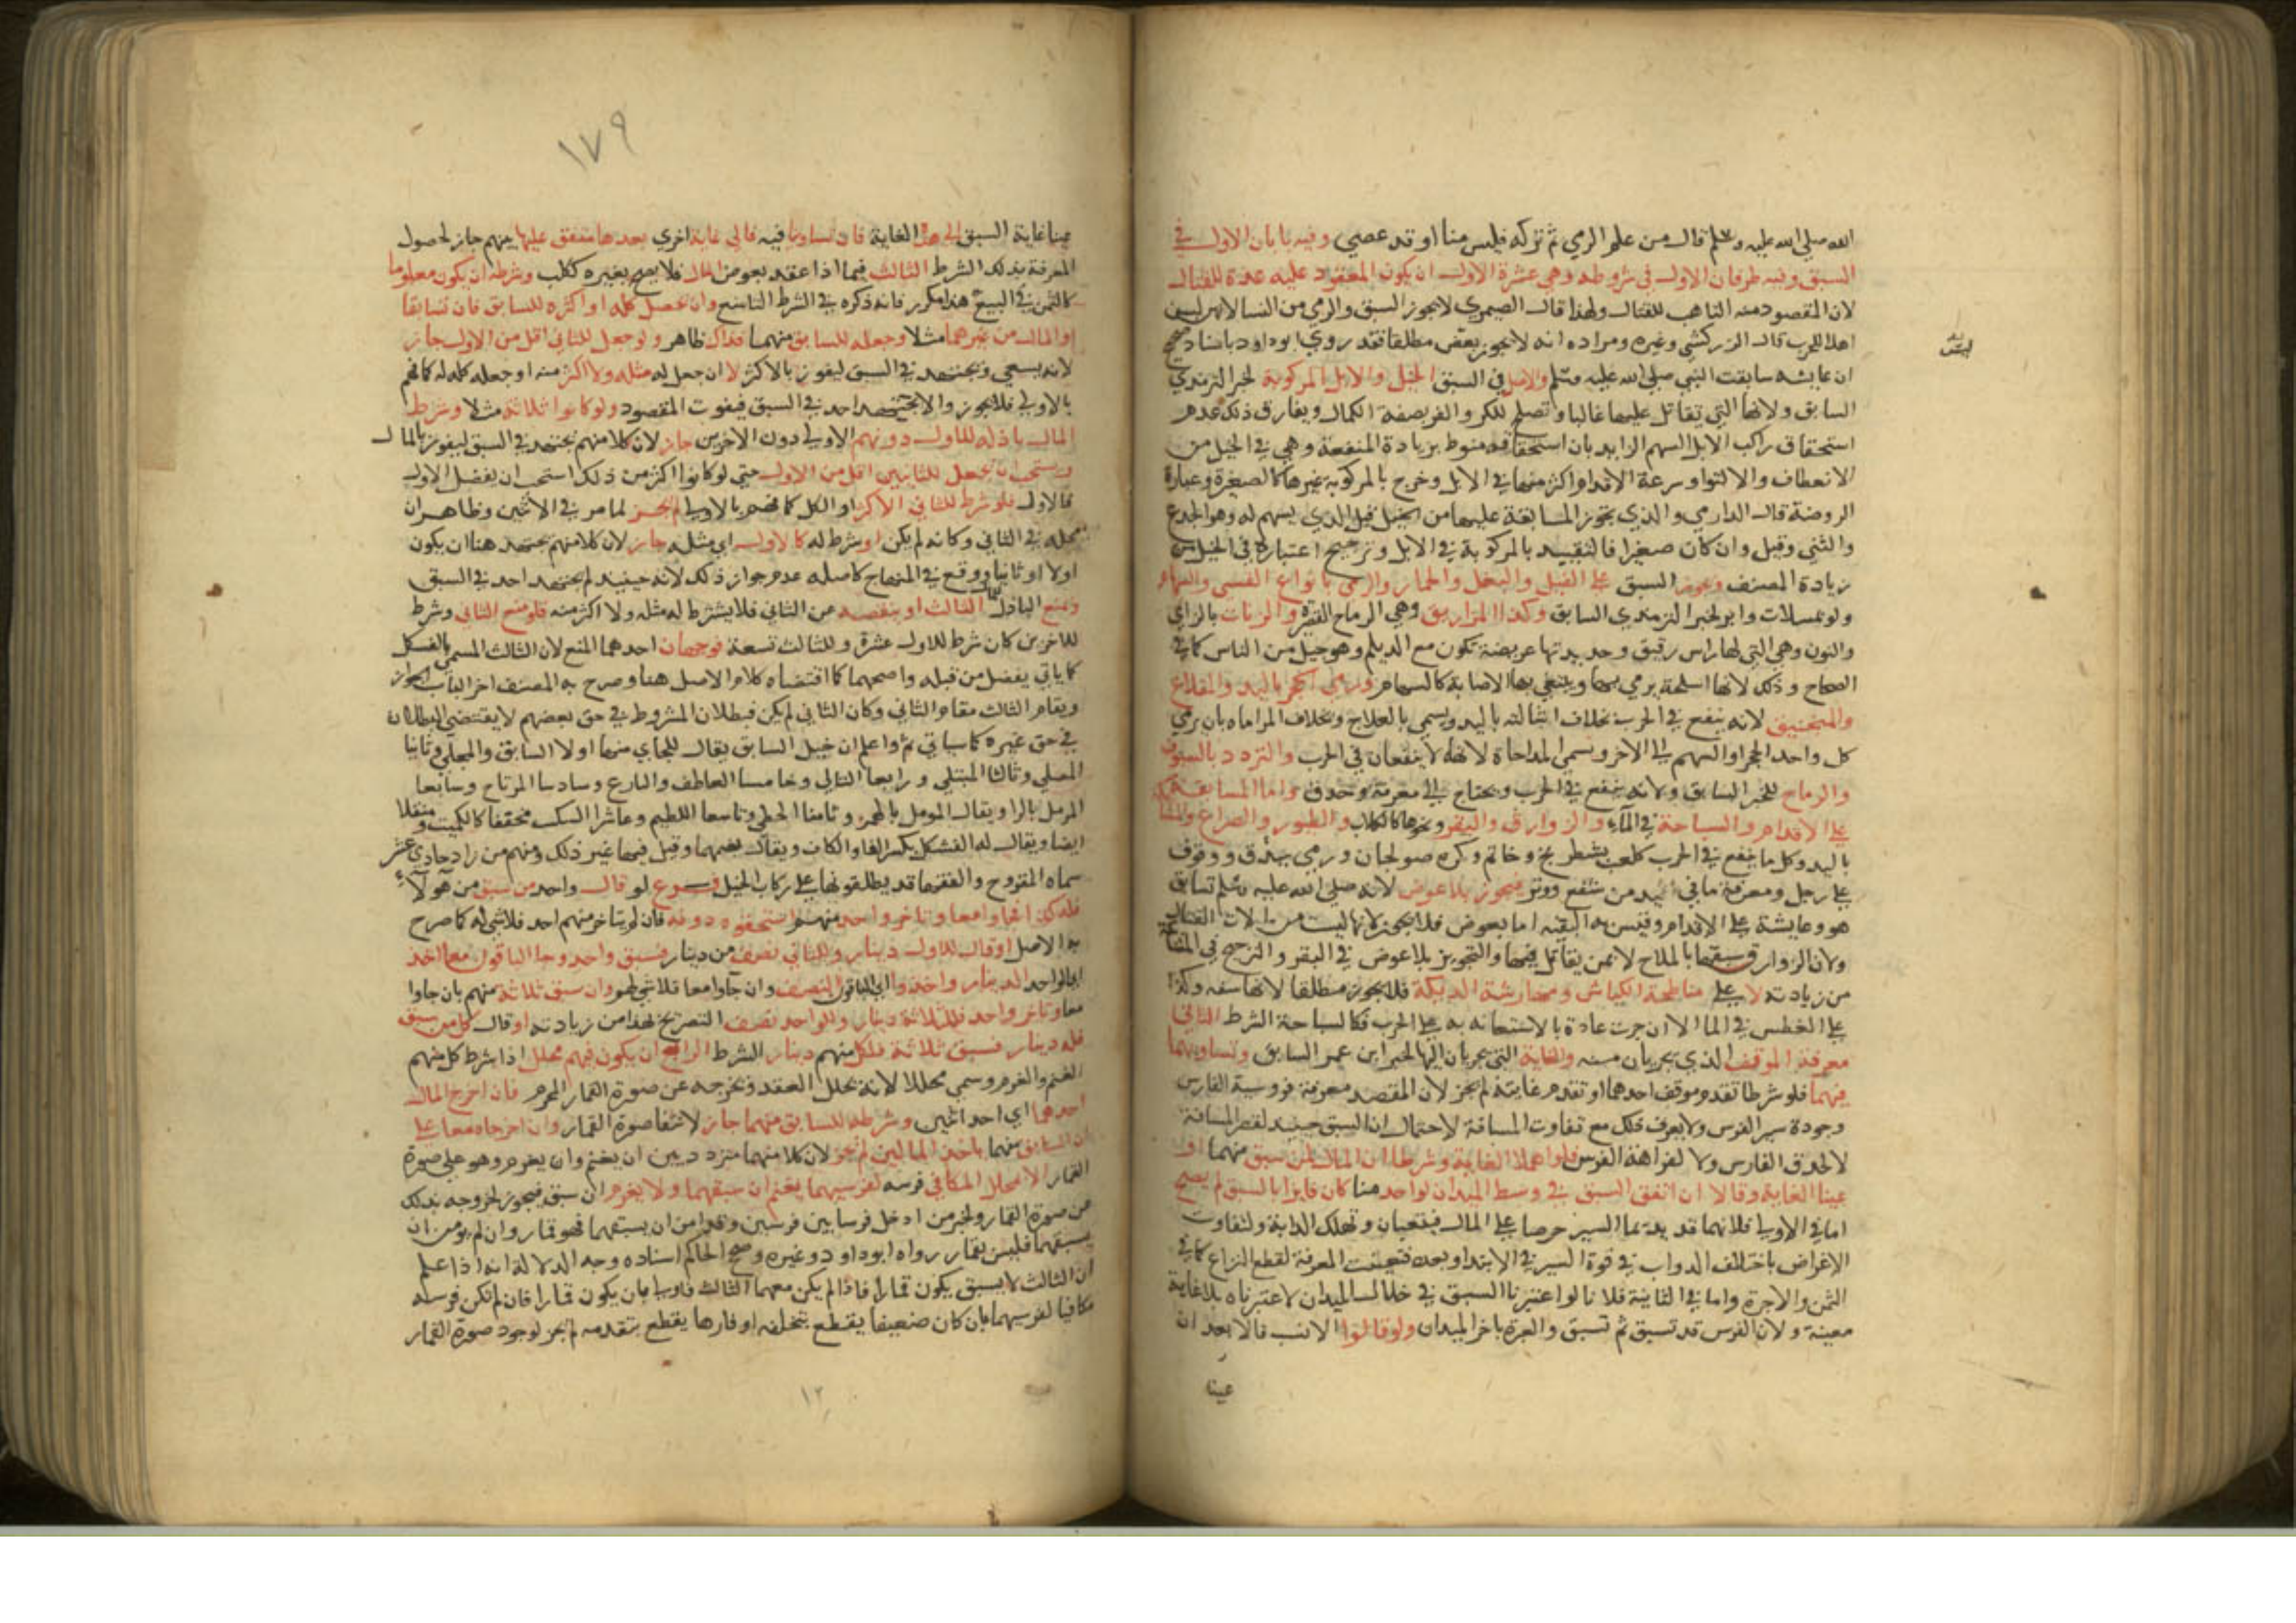 الله صلي الله عليه وسلم قال من علم الرمي ثم تركه فليس منا او قد عصي وفيه بابان الاول في
السبق وفيه طرفان الاول في شروطه وهي عشرة الاول ان يكون المعقود عليه عدة للقتال
لان المقصود منه التاهب للقتال ولهذا قال الصيمري لا يجوز السبق والرمي من النسا لانهن لسن
اهلا للحرب قال الزركشي وغيره ومراده انه لا يجوز بعوض مطلقا فقد روي ابو داود باسناد صحيح
ان عايشه سابقت النبي صلي الله عليه وسلم والاصل في السبق الخيل والابل المركوبة لخبر الترمذي
السابق ولانها التي يقاتل عليها غالبا وتصلح للكر والفر بصفة الكمال ويفارق ذلك عدم
استحقاق راكب الابل السهم الزايد بان استحقاقه منوط بزيادة المنفعة وهي في الخيل من
الانعطاف والالتوا وسرعة الاقدام اكثر منها في الابل وخرج بالمركوبة غيرها كالصغيرة وعبارة
الروضة قال الدارمي والذي يجوز المسابقة عليها من الخيل قيل الذي يسهم له وهو الجذع
والثني وقيل وان كان صغيرا فالتقييد بالمركوبة في الابل وترجيح اعتباره في الخيل من
زيادة المصنف ويجوز السبق علي الفيل والبغل والحمار والرمي بانواع القسي والسهام
ولو بمسلات وابر لخبر الترمذي السابق وكذا المزاريق وهي الرماح القصيرة والزانات بالزاي
والنون وهي التي لها راس رقيق وحديدتها عريضة تكون مع الديلم وهو جيل من الناس كما في
الصحاح وذلك لانها اسلحة يرمي بها ويبتغي بها الاصابة كالسهام ورمي الحجر باليد والمقلاع
والمنجنيق لانه ينفع في الحرب بخلاف اشالته باليد ويسمي بالعلاج وبخلاف المراماه بان يرمي
كل واحد الحجر او السهم الي الاخر وتسمي المداحاة لانها لا ينفعان في الحرب والتردد بالسيوف
والرماح للخبر السابق ولانه ينفع في الحرب ويحتاج الي معرفة وحذق واما المسابقة
علي الاقدام والسباحة في الماء والزوارق والبقر ونحوها كالكلاب والطيور والصراع والشباك
باليد وكل ما ينفع في الحرب كلعب بشطرنج وخاتم وكرة صولجان ورمي ببندق ووقوف
علي رجل ومعرفة ما في اليد من شفع ووتر فيجوز بلا عوض لانه صلي الله عليه وسلم تسابق
هو وعايشة علي الاقدام وقيس به البقيه اما بعوض فلا يجوز لانها ليست من الات القتال
ولان الزوارق سبقها بالملاح لا بمن يقاتل فيها والتجويز بلا عوض في البقر والترجيح في
من زيادته لا علي مناطحة الكباش ومهارشة الديكة فلا يجوز مطلقا لانها سفه وكذا
علي الغطس في الما الا ان جرت عادة بالاستعانه به علي الحرب فكالسباحة الشرط الثاني
معرفة الموقف الذي يجريان منه والغاية التي يجريان اليها لخبر ابن عمر السابق وتساويهما
فيهما فلو شرطا تقدم موقف احدهما او تقدم غايته لم يجز لان المقصد معرفة فروسية الفارس
وجودة سير الفرس ولا يعرف ذلك مع تفاوت المسافة لاحتمال ان السبق حينيذ لقصر المسافة
لا لحذق الفارس ولا لفراهة الفرس فلو اهملا الغاية وشرطا ان المال لمن سبق منهما او
عينا الغاية وقالا ان اتفق السبق في وسط الميدان لواحد منا كان فايزا بالسبق لم يصح
اما في الاولي فلانهما قد يديمان السير حرصا علي المال فيتعبان وتهلك الدابة ولتفاوت
الاغراض باختلاف الدواب في قوة السير في الابتدا وبعده فتعينت المعرفة لقطع النزاع كما في
الثمن والاجرة واما في الثانية فلانا لو اعتبرنا السبق في خلال الميدان لاعتبرناه بلا غاية
معينة ولان الفرس قد تسبق ثم تسبق والعبرة باخر الميدان ولو قالوا الانسب قالا بعد ان
عينا
١٧٩
عينا غاية السبق الي هذا الغاية فان تساوينا فيه فالي غاية اخري بعدها متفق عليها بينهم جاز لحصول
المعرفة بذلك الشرط الثالث فيما اذا عقد بعوض المال فلا يصح بغيره ككلب وشرطه ان يكون معلوما
كالثمن في البيع هذا مكرر فانه ذكره في الشرط التاسع وان يحصل كله او اكثره للسابق فان تسابقا
والمال من غيرهما مثلا وجعله للسابق منهما فذاك ظاهر ولو جعل للثاني اقل من الاول جاز
لانه يسعي ويجتهد في السبق ليفوز بالاكثر لا ان جعل له مثله ولا اكثر منه او جعله كله له كما فهم
بالاولي فلا يجوز والا لم يجتهد احد في السبق فيفوت المقصود ولو كانوا ثلاثة مثلا وشرط
المال باذله للاول دونهم الاولي دون الاخرين جاز لان كلا منهم يجتهد في السبق ليفوز بالمال
ويستحب ان يجعل للثانيين اقل من الاول حتي لو كانوا اكثر من ذلك استحب ان يفضل الاول
فالاول فلو شرط للثاني الاكثر او الكل كما فهم بالاولي لم يجز لما مر في الاثنين وظاهر ان
محله في الثاني وكانه لم يكن او شرط له كالاول اي مثله جاز لان كلا منهم يجتهد هنا ان يكون
اولا او ثانيا ووقع في المنهاج كاصله عدم جواز ذلك لانه حينيذ لم يجتهد احد في السبق
ويمنع الباذل الثالث او ينقصه عن الثاني فلا يشترط له مثله ولا اكثر منه فلو منع الثاني وشرط
للاخرين كان شرط للاول عشرة وللثالث تسعة فوجهان احدهما المنع لان الثالث المسمي بالفسكل
كما ياتي يفضل من قبله واصحهما كما اقتضاه كلام الاصل هنا وصرح به المصنف اخر الباب الجواز
ويقام الثالث مقام الثاني وكان الثاني لم يكن فبطلان المشروط في حق بعضهم لا يقتضي البطلان
في حق غيره كما سياتي ثم واعلم ان خيل السباق يقال للجاي منها اولا السابق والمجلي وثانيا
المصلي وثالثا المتلي ورابعا التالي وخامسا العاطف والبارع وسادسا المرتاح وسابعا
المرمل بالرا ويقال المومل بالهمز وثامنا الحظي وتاسعا اللطيم وعاشرا السكيت مخففا كالكميت ومثقلا
ايضا ويقال له الفسكل بكسر الفا والكاف ويقال بضمهما وقيل فيها غير ذلك ومنهم من زاد حادي عشر
سماه المقروح والفقها قد يطلقونها علي ركاب الخيل فرع لو قال واحد من سبق من هولاء
فله كذا فجاوا معا وتاخر واحد منهم استحقوه دونه فان لم يتاخر منهم احد فلا شي له كما صرح
به الاصل او قال للاول دينار وللثاني نصف من دينار فسبق واحد وجا الباقون معا اخذ
الواحد الدينار واخذ الباقون النصف وان جآوا معا فلا شي لهم وان سبق ثلاثة منهم بان جاوا
معا وتاخر واحد فللثلاثة دينار وللواحد نصف التصريح بهذا من زيادته او قال كل من سبق
فله دينار فسبق ثلاثة فلكل منهم دينار الشرط الرابع ان يكون فيهم محلل اذا شرط كل منهم
الغنم والغرم وسمي محللا لانه يحلل العقد ويخرجه عن صورة القمار المحرم فان اخرج المال
احدهما اي احد اثنين وشرطه للسابق منهما جاز لانتفا صورة القمار وان اخرجاه معا علي
ان السابق منهما ياخذ المالين لم يجز لان كلا منهما متردد بين ان يغنم وان يغرم وهو علي صورة
القمار الا بمحلل المكافي فرسه لفرسيهما يغنم ان سبقهما ولا يغرم ان سبق فيجوز لخروجه بذلك
عن صورة القمار ولخبر من ادخل فرسا بين فرسين وقد امن ان يسبقهما فهو قمار وان لم يومن ان
يسبقهما فليس بقمار رواه ابو داود وغيره وصحح الحاكم اسناده وجه الدلالة انه اذا علم
ان الثالث لا يسبق يكون قمارا فاذا لم يكن معهما الثالث فاولي بان يكون قمارا فان لم تكن فرسه
مكافيا لفرسيهما بان كان ضعيفا يقطع بتخلفه او فارها يقطع بتقدمه لم يجز لوجود صورة القمار
١٢